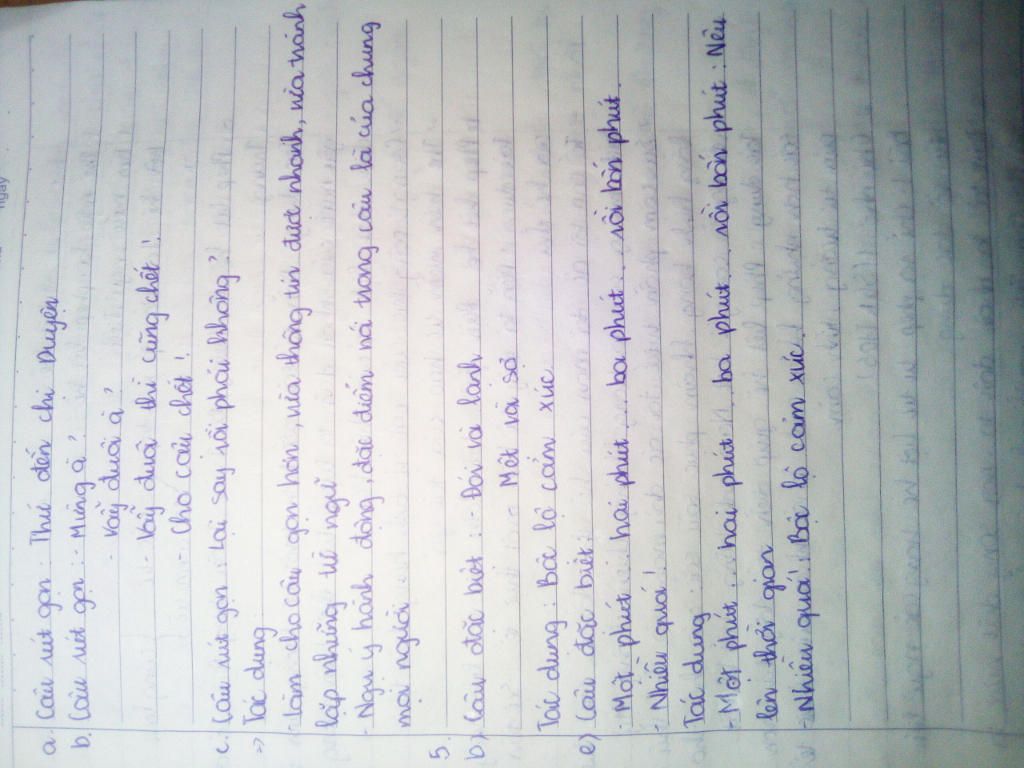 ngày
a. Câu rút gọn : Thứ đến chị Duyện
b. Câu rút gọn : - Mừng à ?
- Vẫy đuôi à ?
- Vẫy đuôi thì cũng chết !
- Cho cậu chết !
c. Câu rút gọn : Lại say rồi phải không ?
=> Tác dụng
- Làm cho câu gọn hơn, vừa thông tin được nhanh, vừa tránh
lặp những từ ngữ
- Ngụ ý hành động, đặc điểm nói trong câu là của chung
mọi người
5.
b) Câu đặc biệt : - Đói và lạnh
Mệt và sợ
Tác dụng : Bộc lộ cảm xúc
e) Câu đặc biệt :
- Một phút... hai phút... ba phút... rồi bốn phút.
- Nhiều quá !
Tác dụng :
- Một phút... hai phút... ba phút... rồi bốn phút : Nêu
lên thời gian
- Nhiên quá ! Bộc lộ cảm xúc.